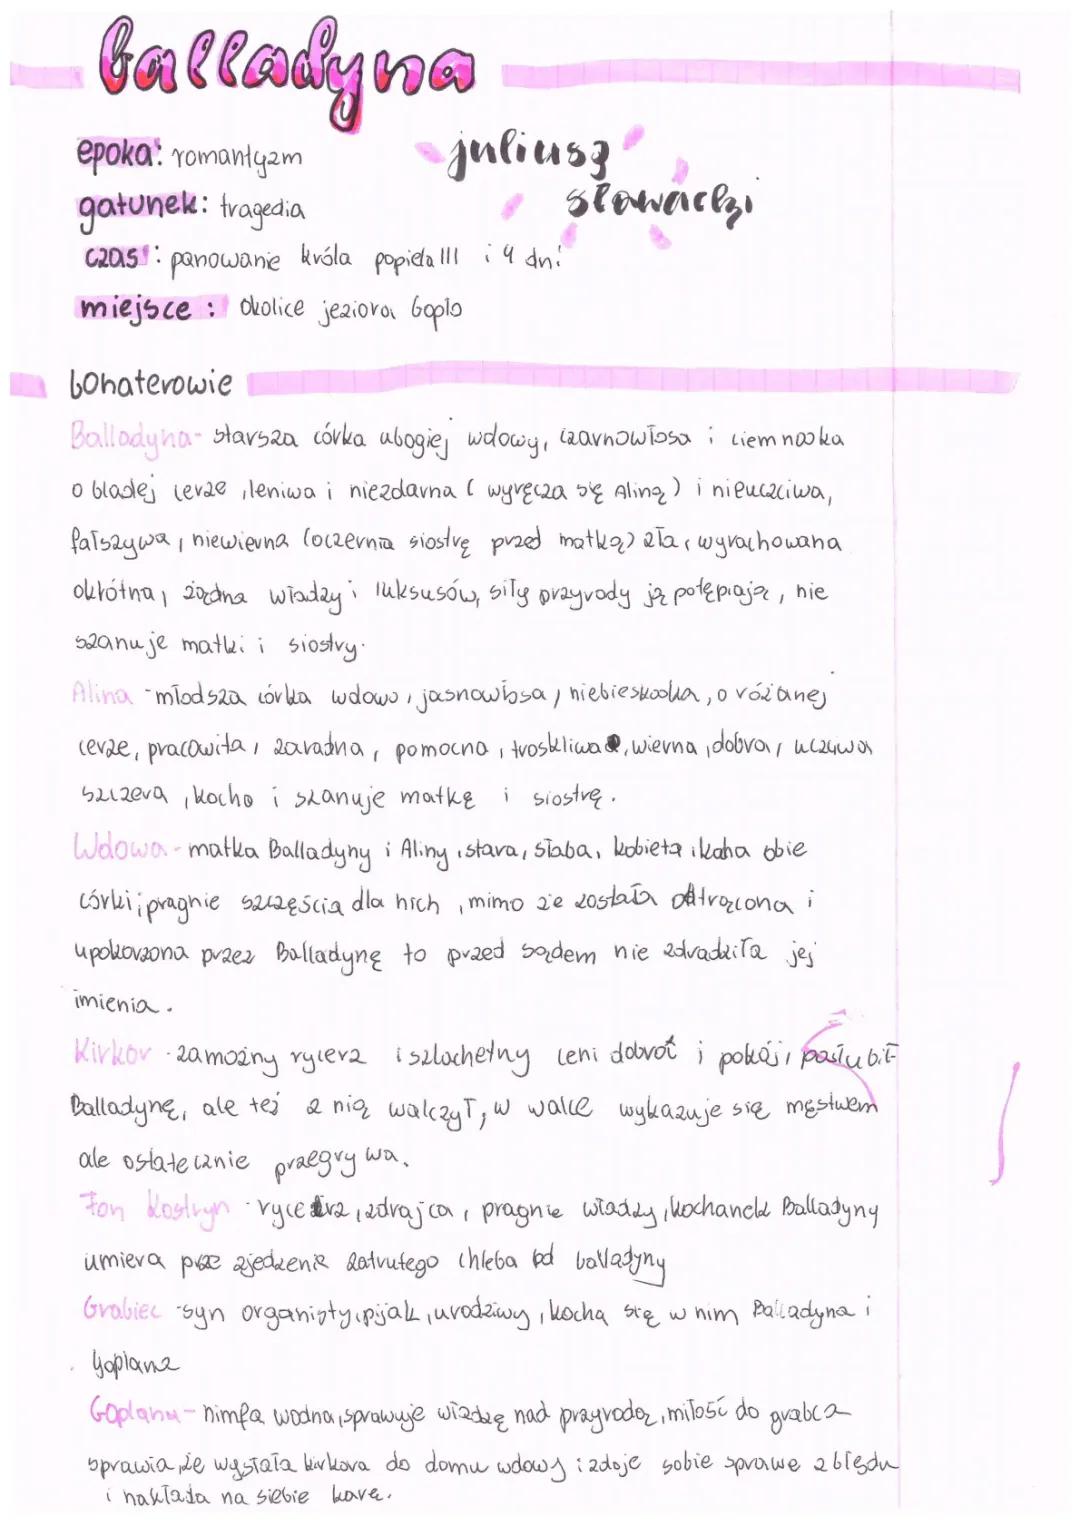 balladyna
epoka: romantyzm
juliusz
słowacki
gatunek: tragedia
czas: panowanie króla popiela III i 4 dni
miejsce: okolice jeziora Gopło
bohaterowie
Balladyna - starsza córka ubogiej wdowy, czarnowłosa i ciemnooka
o bladej cerze, leniwa i niezdarna (wyręcza się Aliną) i nieuczciwa,
fałszywa, niewierna (oczernia siostrę przed matką) zła, wyrachowana
okrótna, żądna władzy i luksusów, siły przyrody ją potępiają, nie
szanuje matki i siostry.
Alina - młodsza córka wdowo, jasnowłosa, niebieskooka, o różanej
cerze, pracowita, zaradna, pomocna, troskliwa, wierna, dobra, uczciwa
szczera, kocha i szanuje matkę i siostrę.
Wdowa - matka Balladyny i Aliny, stara, słaba, kobieta, kocha obie
córki; pragnie szczęścia dla nich, mimo że została odtrącona i
upokorzona przez Balladynę to przed sądem nie zdradziła jej
imienia.
Kirkor - zamożny rycerz i szlachetny ceni dobroć i pokój, poślubił
Balladynę, ale też z nią walczył, w walce wykazuje się męstwem
ale ostatecznie przegrywa.
Fon Kostryn - rycerz, zdrajca, pragnie władzy, kochanek Balladyny
umiera prze zjedzenie zatrutego chleba od balladyny
Grabiec - syn organisty, pijak, urodziwy, kocha się w nim Balladyna i
goplana
Goplana - nimfa wodna, sprawuje władzę nad przyrodą, miłość do grabca
sprawia, że wysłała kirkora do domu wdowy i zdaje sobie sprawe z błędu
i nakłada na siebie karę.